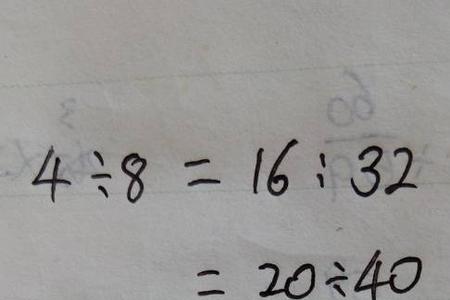 4÷8 = 16:32
= 20÷40